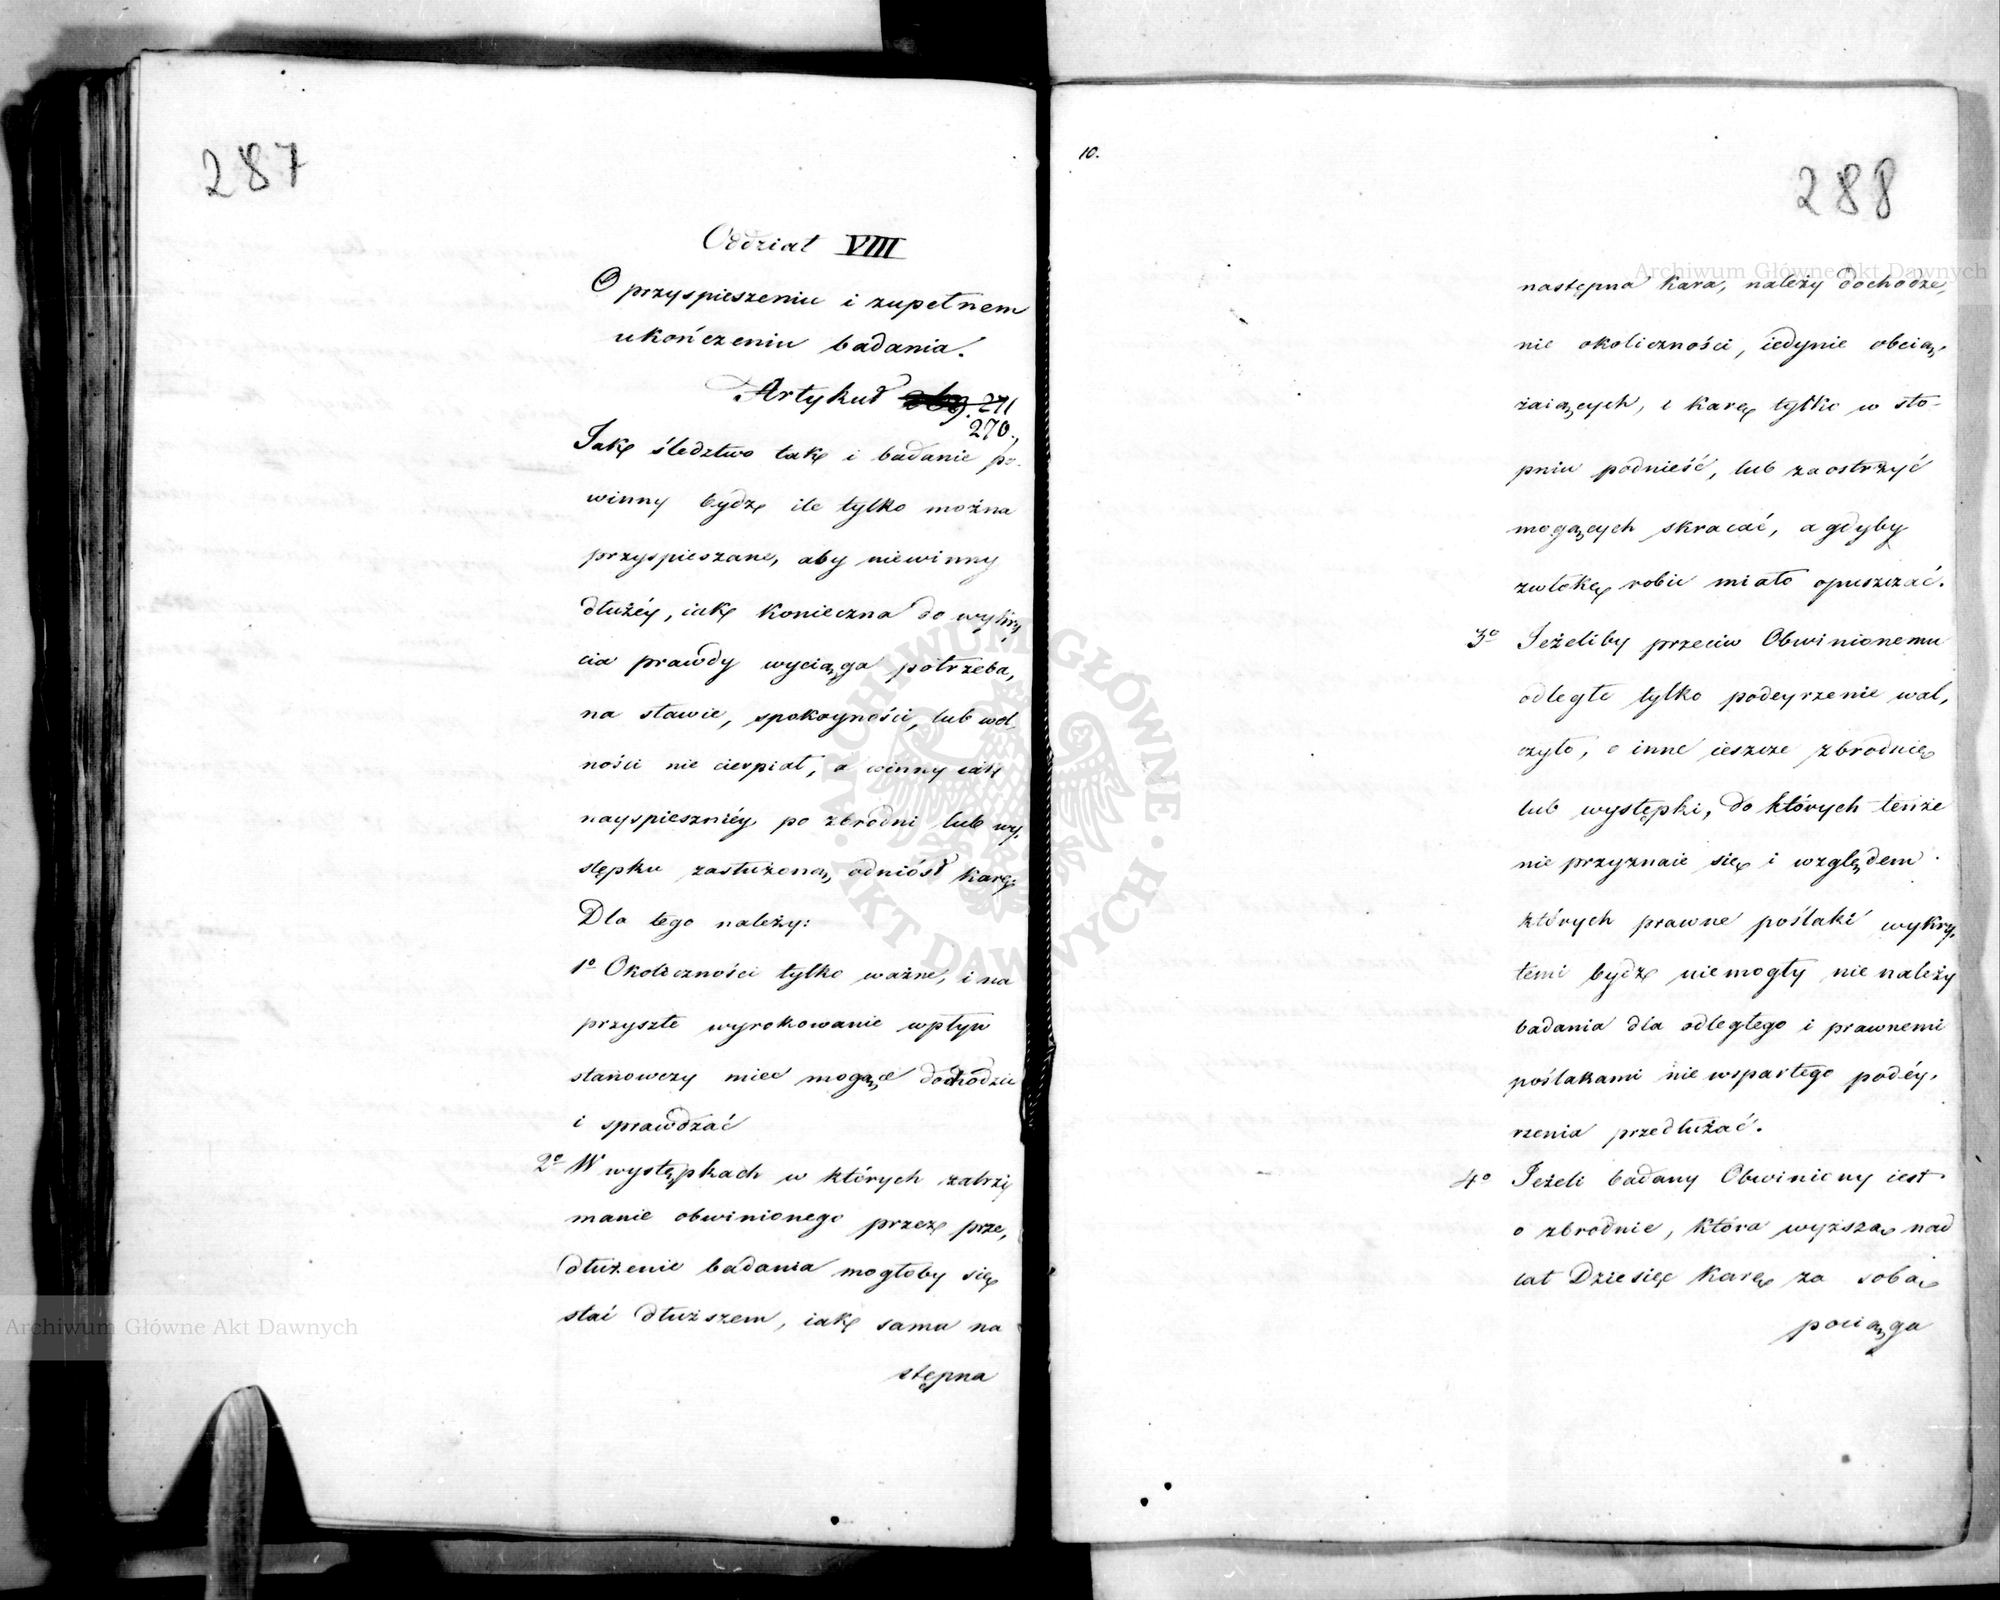 287
Oddział VIII
O przyspieszeniu i zupełnem
ukończeniu badania.
Artykuł 271
270.
Jak śledztwo tak i badanie po-
winny bydź ile tylko można
przyspieszane, aby niewinny
dłużéy, iak konieczna do wykry
cia prawdy wyciąga potrzeba,
na sławie, spokoyności, lub wol,
ności nie cierpiał, a winny iak
nayspieszniéy po zbrodni lub wy,
stępku zasłużoną, odniósł karę:
Dla tego należy:
1o Okoliczności tylko ważne, i na
przyszłe wyrokowanie wpływ
stanowczy mieć mogące dochodzić
i sprawdzać
2o W występkach w których zatrzy
manie obwinionego przez prze,
dłużenie badania mogłoby się
stać dłuższem, iak sama na
stępna
10.
288
następna kara, należy dochodze,
nie okoliczności, iedynie obcią,
żaiących, i karę tylko w sto-
pniu podnieść, lub zaostrzyć
mogących skracać, a gdyby
zwłokę robić miało opuszczać.
3o Jeżeliby przeciw Obwinionemu
odległe tylko podeyrzenie wal,
czyło, o inne ieszcze zbrodnie
lub występki, do których tenże
nie przyznaie się i względem
których prawne poślaki wykry,
temi bydź niemogły nie należy
badania dla odległego i prawnemi
poślakami nie wspartego podéy,
rzenia przedłużać.
4o Jeżeli badany Obwiniony iest
o zbrodnie, która wyższą nad
lat Dziesięć karę za sobą
pociąga
Archiwum Główne Akt Dawnych
Archiwum Główne Akt Dawnych
ARCHIWUM GŁÓWNE · AKT DAWNYCH ·